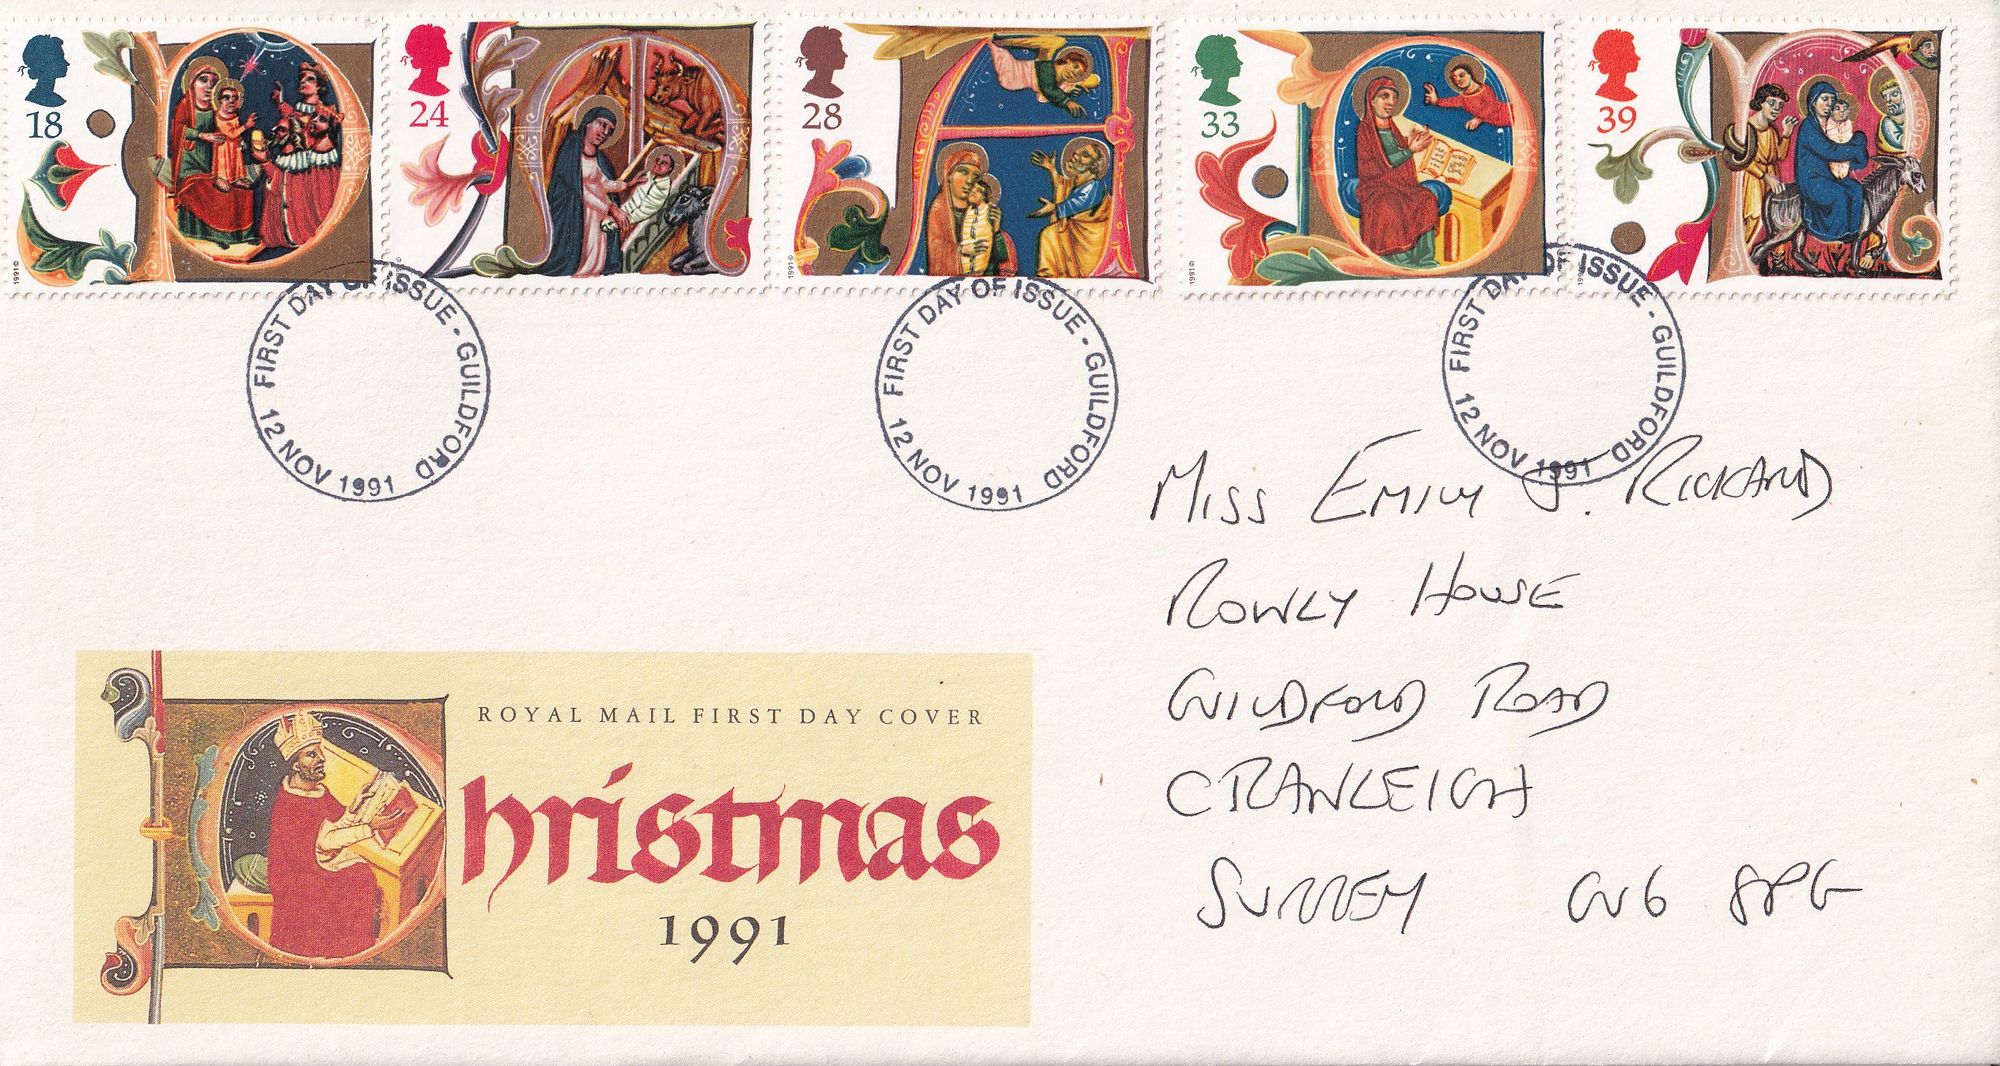 18
24
28
33
39
1991©
1991©
1991©
FIRST DAY OF ISSUE - GUILDFORD
12 NOV 1991
FIRST DAY OF ISSUE - GUILDFORD
12 NOV 1991
FIRST DAY OF ISSUE - GUILDFORD
12 NOV 1991
MISS EMILY J. RICKARD
ROWLY HOUSE
GUILDFORD ROAD
CRANLEIGH
SURREY GU6 8PG
ROYAL MAIL FIRST DAY COVER
Christmas
1991